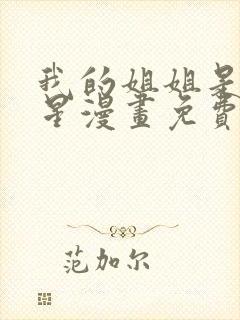 我的姐姐是
星漫畫免費
范加尔